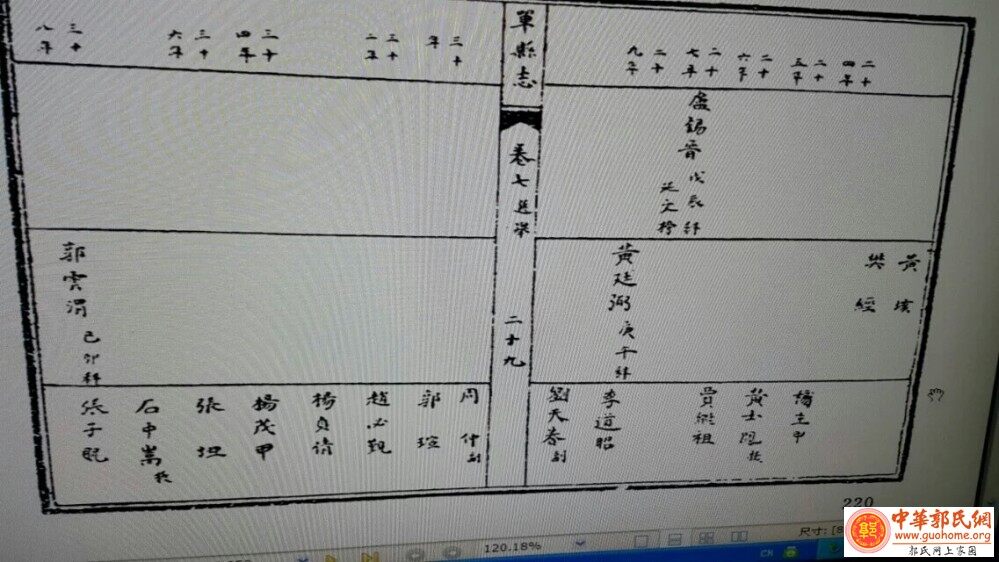 二十四年
二十五年
二十六年
二十七年
二十九年
盧錫晉 戊辰科
延文榜
黃
樊經
黃廷弼 庚午科
楊生甲
黃士
賈繼祖
李道昭
劉天泰 副
單縣志
卷七選舉
二十九
三十年
三十二年
三十四年
三十六年
三十八年
郭雲渭 己卯科
周仲 副
郭瑄
趙必觀
楊貞倩
楊茂甲
張坦
石中嵩 拔
張子
220
120.18%
尺寸: [8
CH
中華郭氏網
www.guohome.org
郭氏网上家園